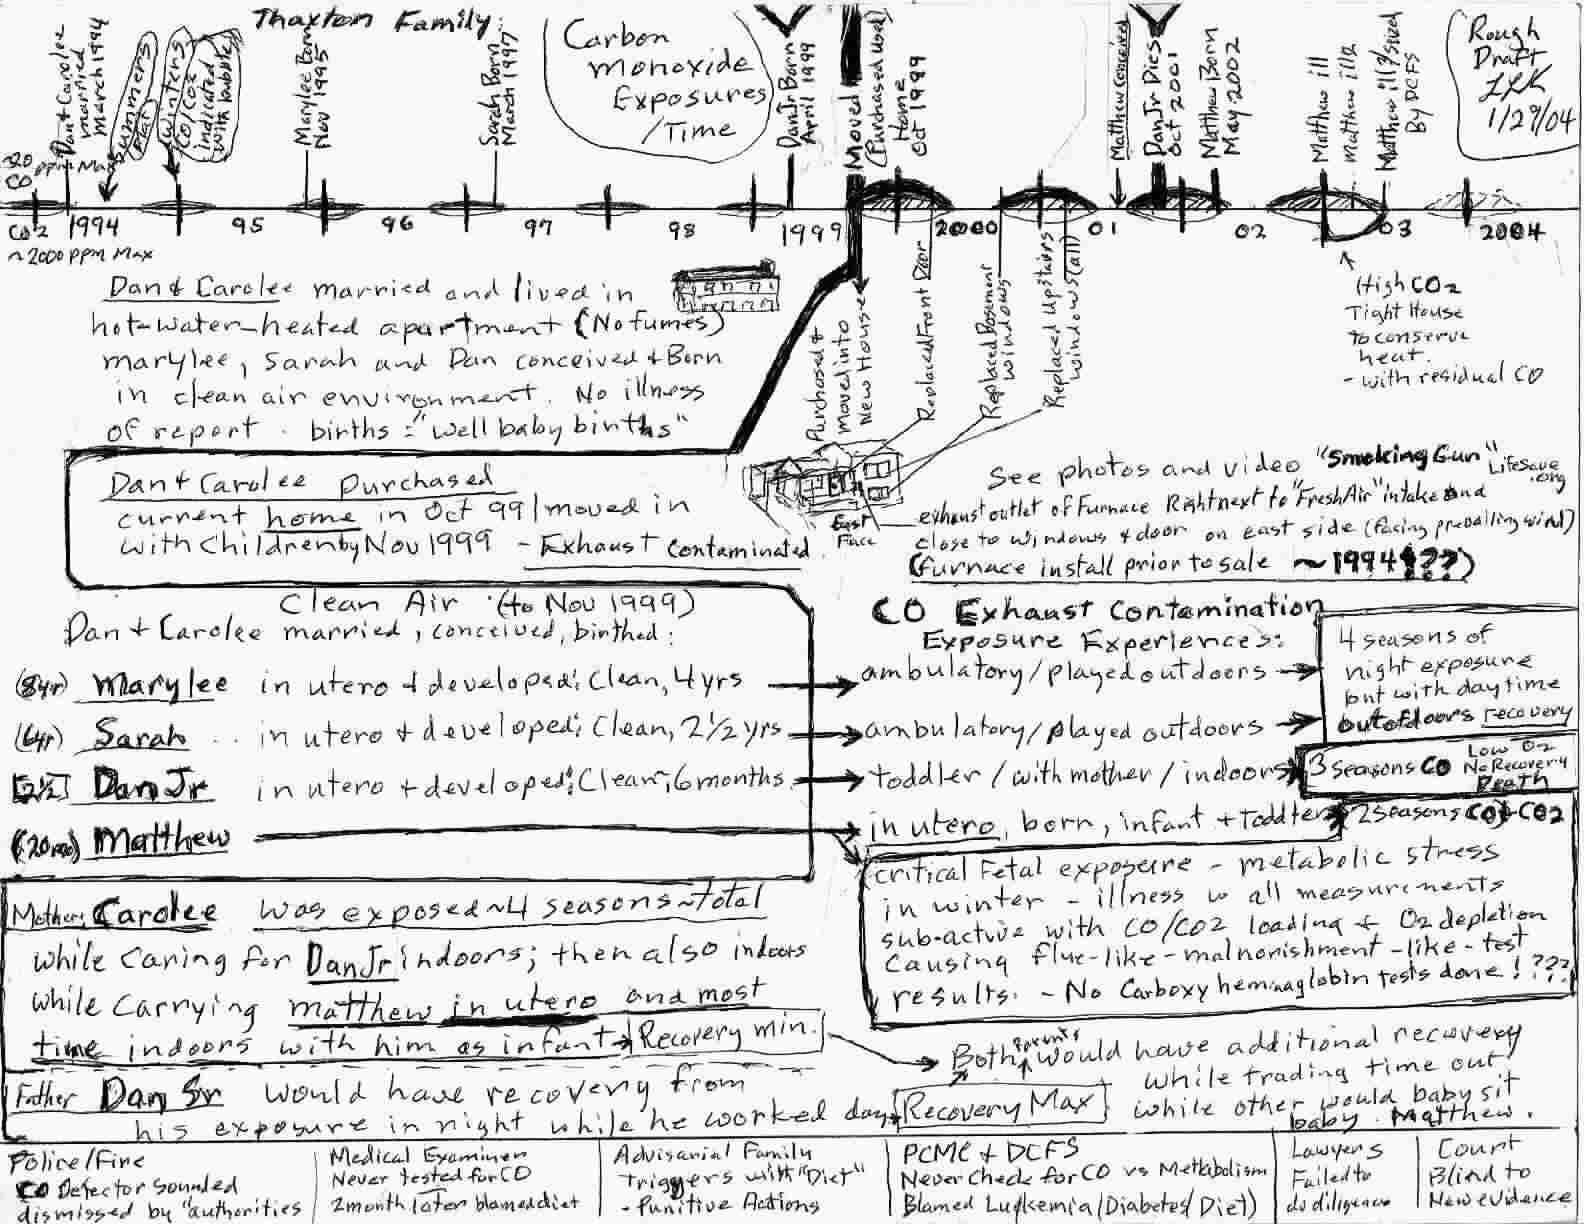 Thaxton Family:
Carbon
monoxide
Exposures
/Time
Rough
Draft
1/29/04
Dan & Carolee
married
March 1994
Summers
Winters
CO/CO2
indicated
Marylee Born
Nov 1995
Sarah Born
March 1997
DanJr Born
April 1999
Moved
(Purchased used)
Home
Oct 1999
Matthew Conceived
DanJr Dies
Oct 2001
Matthew Born
May 2002
Matthew ill
Matthew ill 2
Matthew ill 3/Sized
By DCFS
~20
ppm Max
CO
CO2
~2000 ppm Max
1994
95
96
97
98
1999
2000
01
02
03
2004
Dan & Carolee married and lived in
hot-water-heated apartment (No fumes)
marylee, Sarah and Dan conceived & Born
in clean air environment. No illness
of report. births = "well baby births"
Purchased &
moved into
New House
Replaced Front Door
Replaced Basement
windows
Replaced Upstairs
windows (all)
High CO2
Tight House
to conserve
heat.
- with residual CO
Dan & Carolee purchased
current home in Oct 99/moved in
with Children by Nov 1999 - Exhaust contaminated.
East
Face
See photos and video "Smoking Gun" LifeSave
.org
exhaust outlet of Furnace Right next to "Fresh Air" intake and
close to windows & door on east side (facing prevailing wind)
(Furnace install prior to sale ~1994???)
Clean Air (to Nov 1999)
Dan & Carolee married, conceived, birthed:
CO Exhaust Contamination
Exposure Experiences:
(8yr) Marylee in utero & developed: Clean, 4 yrs
ambulatory/played outdoors
(6yr) Sarah .. in utero & developed: Clean, 2 1/2 yrs
ambulatory/played outdoors
4 seasons of
night exposure
but with day time
out of doors recovery
[2 1/2] DanJr in utero & developed: Clean, 6 months
toddler/with mother/indoors
3 seasons CO
Low O2
No Recovery
Death
(20mo) Matthew
in utero, born, infant & toddler
2 seasons CO + CO2
critical Fetal exposure - metabolic stress
in winter - illness w all measurements
sub-active with CO/CO2 loading & O2 depletion
causing flue-like-malnorishment-like-test
results. - No Carboxy hemaglobin tests done!???
Mother: Carolee was exposed ~4 seasons ~total
while caring for DanJr indoors; then also indoors
while carrying matthew in utero and most
time indoors with him as infant
Recovery min.
Both parents would have additional recovery
while trading time out
while other would baby sit
baby. Matthew.
Father Dan Sr would have recovery from
his exposure in night while he worked day
Recovery Max
Police/Fire
CO Detector sounded
dismissed by "authorities
Medical Examiner
Never tested for CO
2month later blamed diet
Advisarial Family
triggers with "Diet"
- Punitive Actions
PCMC & DCFS
Never Check for CO vs Metkabolism
Blamed Lukemia/(Diabetes/Diet)
Lawyers
Failed to
do diligence
Court
Blind to
New evidence